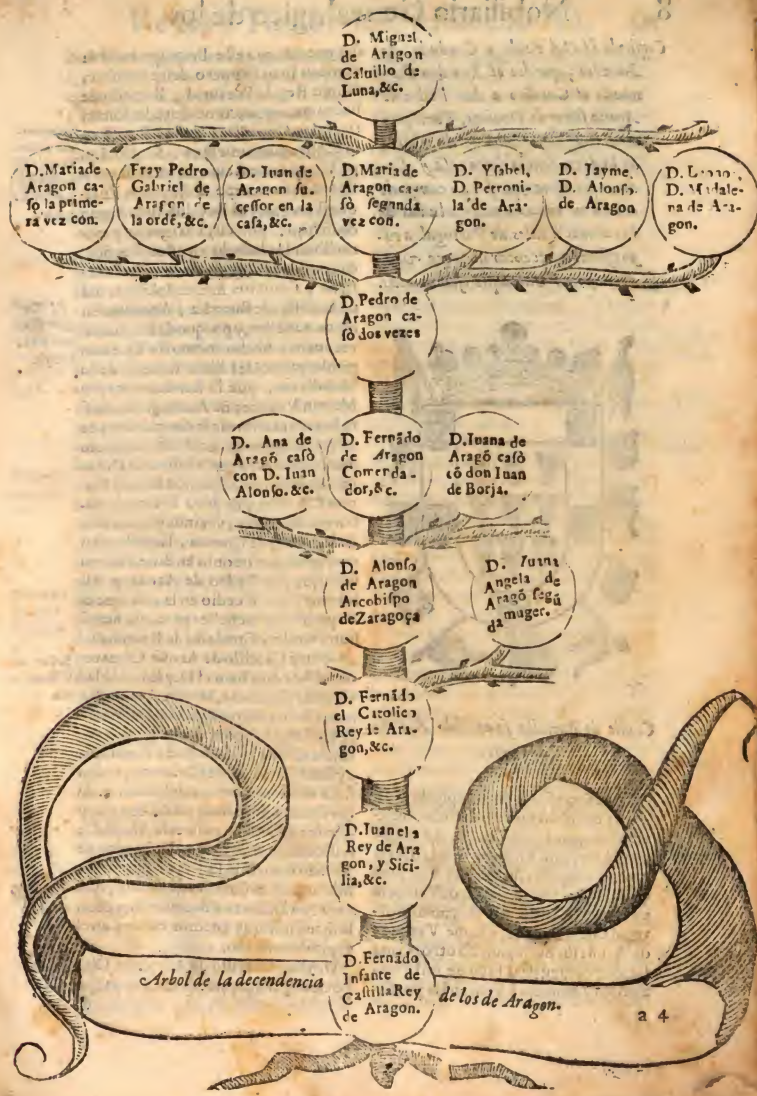 D. Miguel
de Aragon
Caluillo de
Luna, &c.
D. Maria de
Aragon ca-
ſo la prime-
ra vez con.
Fray Pedro
Gabriel de
Aragon de
la ordẽ, &c.
D. Iuan de
Aragon ſu-
ceſſor en la
caſa, &c.
D. Maria de
Aragon ca-
ſò ſegunda
vez con.
D. Yſabel,
D. Perroni-
la de Ara-
gon.
D. Jayme,
D. Alonſo
de Aragon
D.
D. Madale-
na de Ara-
gon.
D. Pedro de
Aragon ca-
ſò dos vezes
D. Ana de
Aragõ caſò
con D. Iuan
Alonſo. &c.
D. Fernãdo
de Aragon
Comenda-
dor, &c.
D. Iuana de
Aragõ caſò
cõ don Iuan
de Borja.
D. Alonſo
de Aragon
Arcobiſpo
de Zaragoça
D. Iuana
Angela de
Aragõ ſegũ
da muger.
D. Fernãdo
el Catolico
Rey de Ara-
gon, &c.
D. Iuan el 2
Rey de Ara
gon, y Sici-
lia, &c.
D. Fernãdo
Infante de
Caſtilla Rey
de Aragon.
Arbol de la decendencia de los de Aragon.
a 4